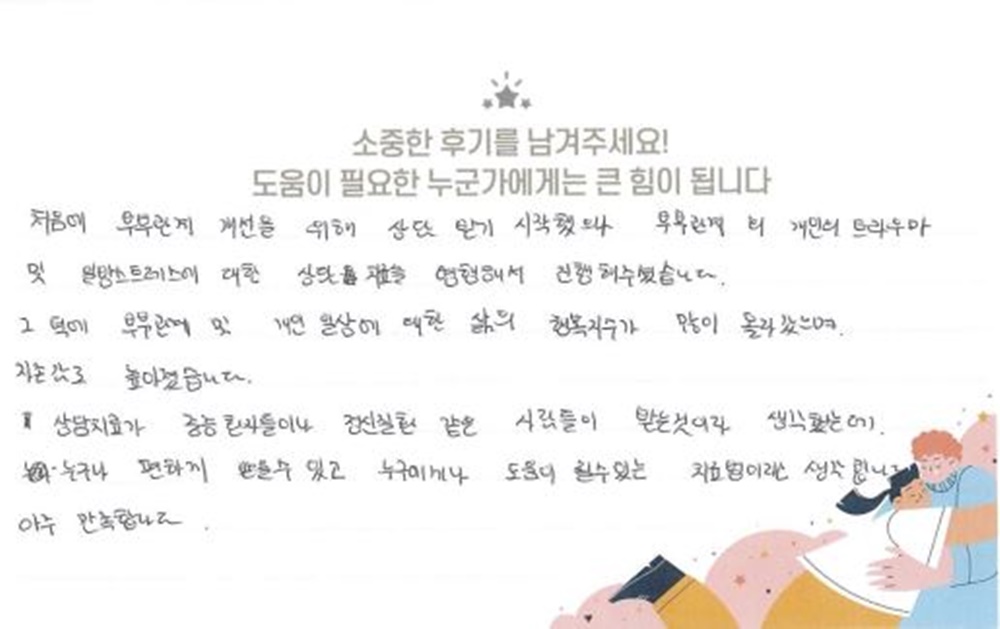 소중한 후기를 남겨주세요!
도움이 필요한 누군가에게는 큰 힘이 됩니다
처음에 부부관계 개선을 위해 상담 받기 시작했으나 부부관계 외 개인의 트라우마
및 일상스트레스에 대한 상담을 병행해서 진행해주셨습니다.
그 덕에 부부관계 및 개인 일상에 대한 삶의 행복지수가 많이 올라갔으며,
자존감도 높아졌습니다.
상담치료가 중증환자들이나 정신질환 같은 사람들이 받는것이라 생각했는데,
누구나 편하게 받을수 있고 누구에게나 도움이 될수있는 치료법이라는 생각
아주 만족합니다.